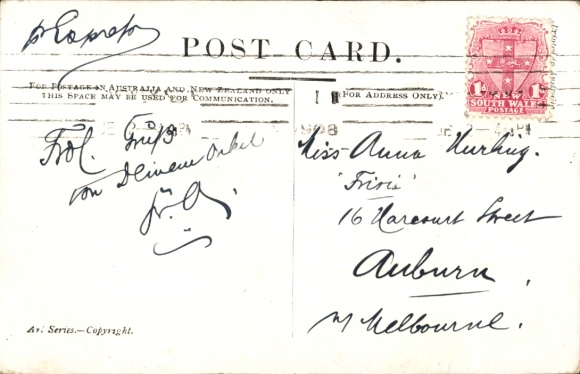 POST CARD.
FOR POSTAGE IN AUSTRALIA AND NEW ZEALAND ONLY
THIS SPACE MAY BE USED FOR COMMUNICATION.
(FOR ADDRESS ONLY).
1D
1D
SOUTH WALES
POSTAGE
1908
Frdl. Gruß
von Deinem Onkel
Miss Anna
16 Harcourt Street
Auburn
Melbourne.
Art Series.—Copyright.